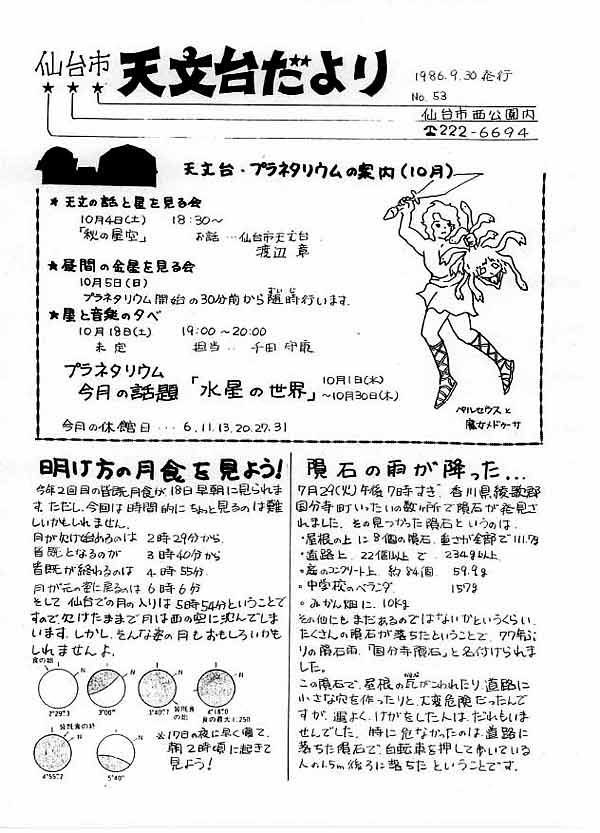 仙台市 天文台だより
1986.9.30 発行
No. 53
仙台市西公園内
☎222-6694
天文台・プラネタリウムの案内(10月)
★天文の話と星を見る会
10月4日(土) 18:30〜
「秋の星空」 お話…仙台市天文台
渡辺 章
★昼間の金星を見る会
10月5日(日)
プラネタリウム開始の30分前から随時行います.
★星と音楽の夕べ
10月18日(土) 19:00〜20:00
未定 担当‥ 千田 守康
プラネタリウム
今月の話題「水星の世界」 10月1日(水)
〜10月30日(木)
今月の休館日… 6.11.13.20.27.31
ペルセウスと
魔女メドゥーサ
明け方の月食を見よう!
今年2回目の皆既月食が18日早朝に見られま
す.ただし、今回は時間的にちょっと見るのは難
しいかもしれません.
月が欠け始めるのは 2時29分から.
皆既となるのが 3時40分から
皆既が終わるのは 4時55分.
月が元の姿に戻るのは 6時6分
そして 仙台での月の入りは5時54分ということで
すので、欠けたままで月は西の空に沈んでしま
います. しかし、そんな姿の月もおもしろいかも
しれませんよ.
食の始
N N N N
2h29m3 3h00m 3h40m7 4h18m0
皆既食の始 食の最大1.250
皆既食の終
N N
4h55m2 5h40m
※17日の夜に早く寝て、
朝2時頃に起きて
見よう!
隕石の雨が降った...
7月29(火)午後7時すぎ、香川県綾歌郡
国分寺町いったいの数ヶ所で隕石が発見さ
れました. その見つかった隕石というのは.
・屋根の上に 8個の隕石.重さが全部で 111.7g
・道路上. 22個以上で. 234g以上.
・庭のコンクリート上. 約84個. 59.9g
・中学校のベランダ. 157g
・みかん畑に. 10kg
その他にもまだあるのではないかというくらい.
たくさんの隕石が落ちたということで、77年ぶ
りの隕石雨.「国分寺隕石」と名付けられま
した。
この隕石で、屋根の瓦がこわれたり、道路に
小さな穴を作ったりと、大変危険だったんで
すが、運よく、けがをした人は、だれもいま
せんでした. 特に危なかったのは、道路に
落ちた隕石で、自転車を押して歩いている
人の1.5m後ろに落ちたということです.